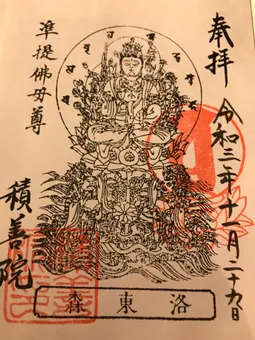 奉拝
令和三年十一月二十九日
準提佛母尊
積善院
森東洛